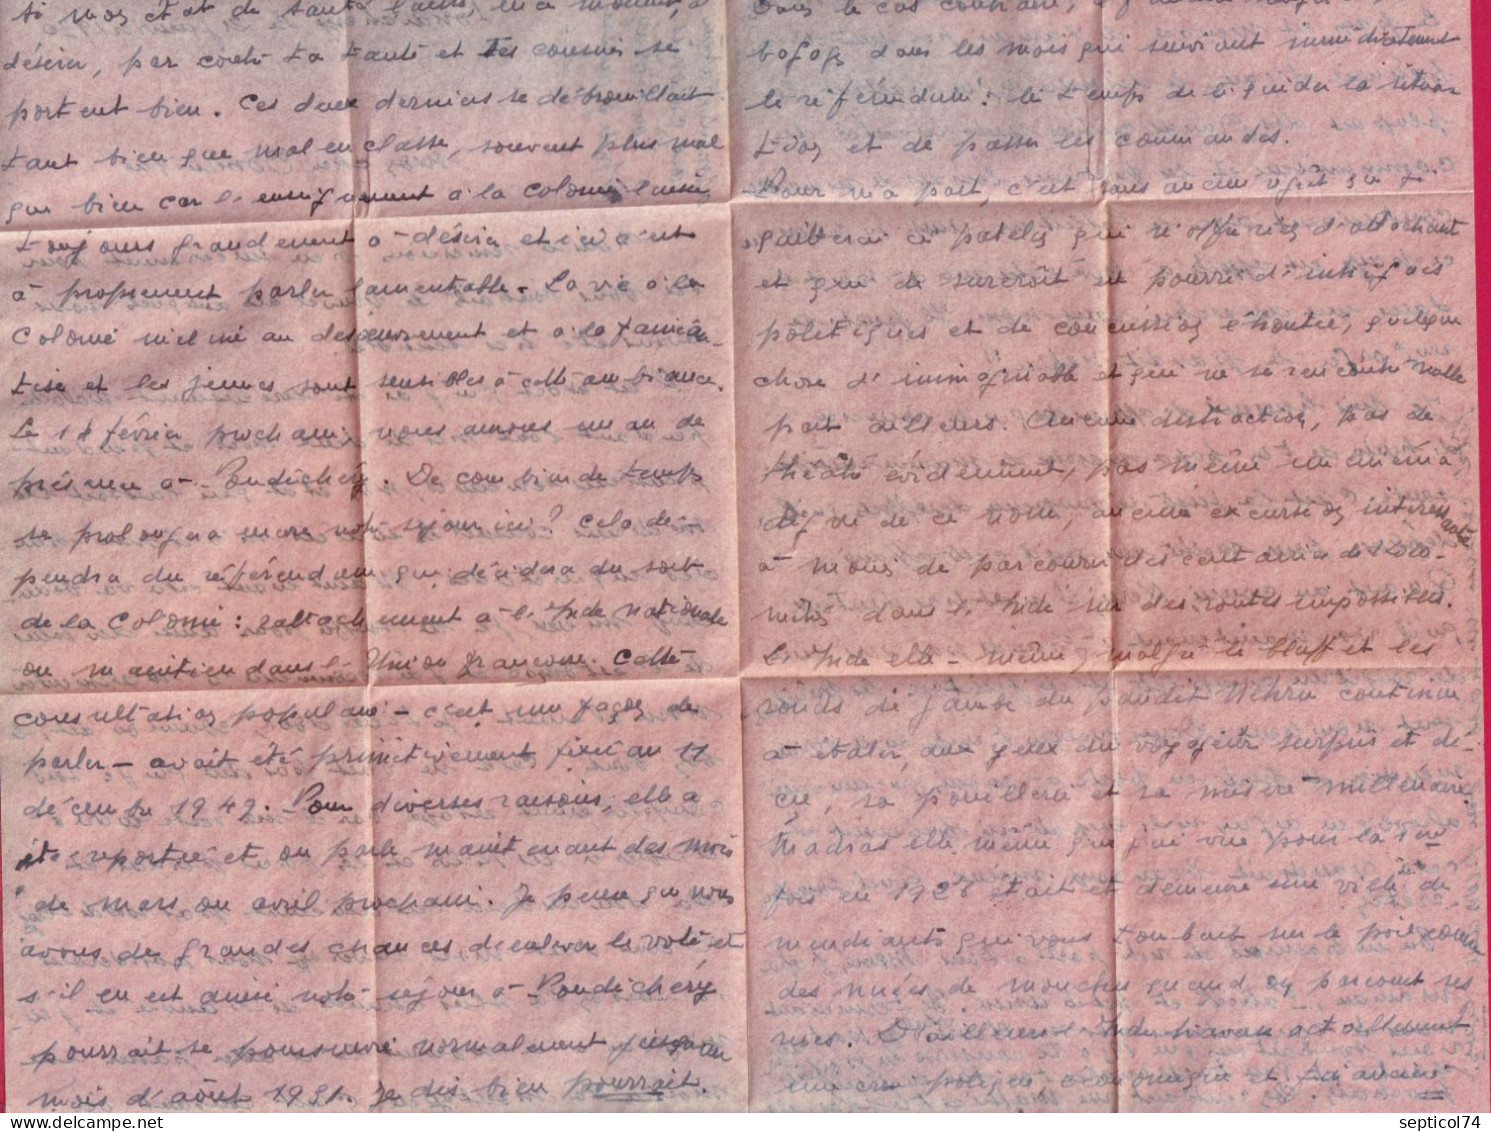 si mon état de santé laisse, en ce moment, à
désirer, par contre ta tante et tes cousins se
portent bien. Ces deux derniers se débrouillent
tant bien que mal en classe, souvent plus mal
que bien car l'enseignement à la colonie laisse
toujours grandement à désirer et ici c'est
à proprement parler lamentable. La vie à la
Colonie incline au désœuvrement et à la fainéan-
tise et les jeunes sont sensibles à cette ambiance.
Le 18 février prochain nous aurons un an de
présence à Pondichéry. De combien de temps
se prolongera encore notre séjour ici? Cela dé-
pendra du référendum qui décidera du sort
de la Colonie : rattachement à l'Inde Nationale
ou maintien dans l'Union française. Cette
consultation populaire - c'est une façon de
parler - avait été primitivement fixée au 11
décembre 1949. Pour diverses raisons, elle a
été reportée et on parle maintenant des mois
de mars ou avril prochain. Je pense que nous
avons de grandes chances d'enlever le vote et
s'il en est ainsi notre séjour à Pondichéry
pourrait se poursuivre normalement jusqu'au
mois d'août 1951. Je dis bien pourrait.
Dans le cas contraire,
dans les mois qui suivront immédiatement
le référendum : le temps de liquider la situa-
tion et de passer les commandes.
Pour ma part, c'est sans aucun regret que je
quitterai ce patelin qui n'offre rien d'attachant
et qui de surcroît est pourri d'intrigues
politiques et de concussion éhontée, quelque
chose d'inimaginable et qui ne se rencontre nulle
part ailleurs. Aucune distraction, pas de
théâtre évidemment, pas même un cinéma
digne de ce nom, aucune excursion intéressante
à moins de parcourir des centaines de kilo-
mètres dans l'Inde sur des routes impossibles.
L'Inde elle-même, malgré le bluff et les
ronds de jambe du pandit Nehru continue
à étaler, aux yeux du voyageur surpris et dé-
çu, sa pouillerie et sa misère millénaire.
Madras elle même que j'ai vue pour la 1ère
fois en 1928 était et demeure une ville de
mendiants qui vous tombait sur le poil comme
des nuées de mouches quand on parcourt ses
rues. D'ailleurs l'Inde traverse actuellement
une crise politique économique et financière
septicol74